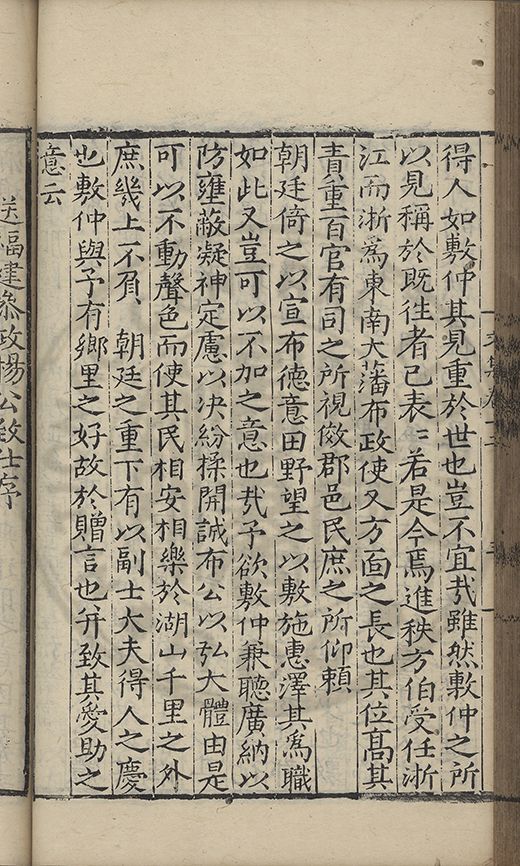 得人如敷仲其見重於世也豈不宜哉雖然敷仲之所
以見稱於既往者已表〻若是今焉進秩方伯受任浙
江而浙為東南大藩布政使又方面之長也其位髙其
責重百官有司之所視傚郡邑民庶之所仰頼
朝廷倚之以宣布德意田野望之以敷施惠澤其為職
如此又豈可以不加之意也哉予欲敷仲兼聽廣納以
防壅蔽凝神定慮以决紛揉開誠布公以弘大體由是
可以不動聲色而使其民相安相樂於湖山千里之外
庶幾上不負 朝廷之重下有以副士大夫得人之慶
也敷仲與予有鄉里之好故於贈言也并致其愛助之
意云
送福建叅政楊公致仕序